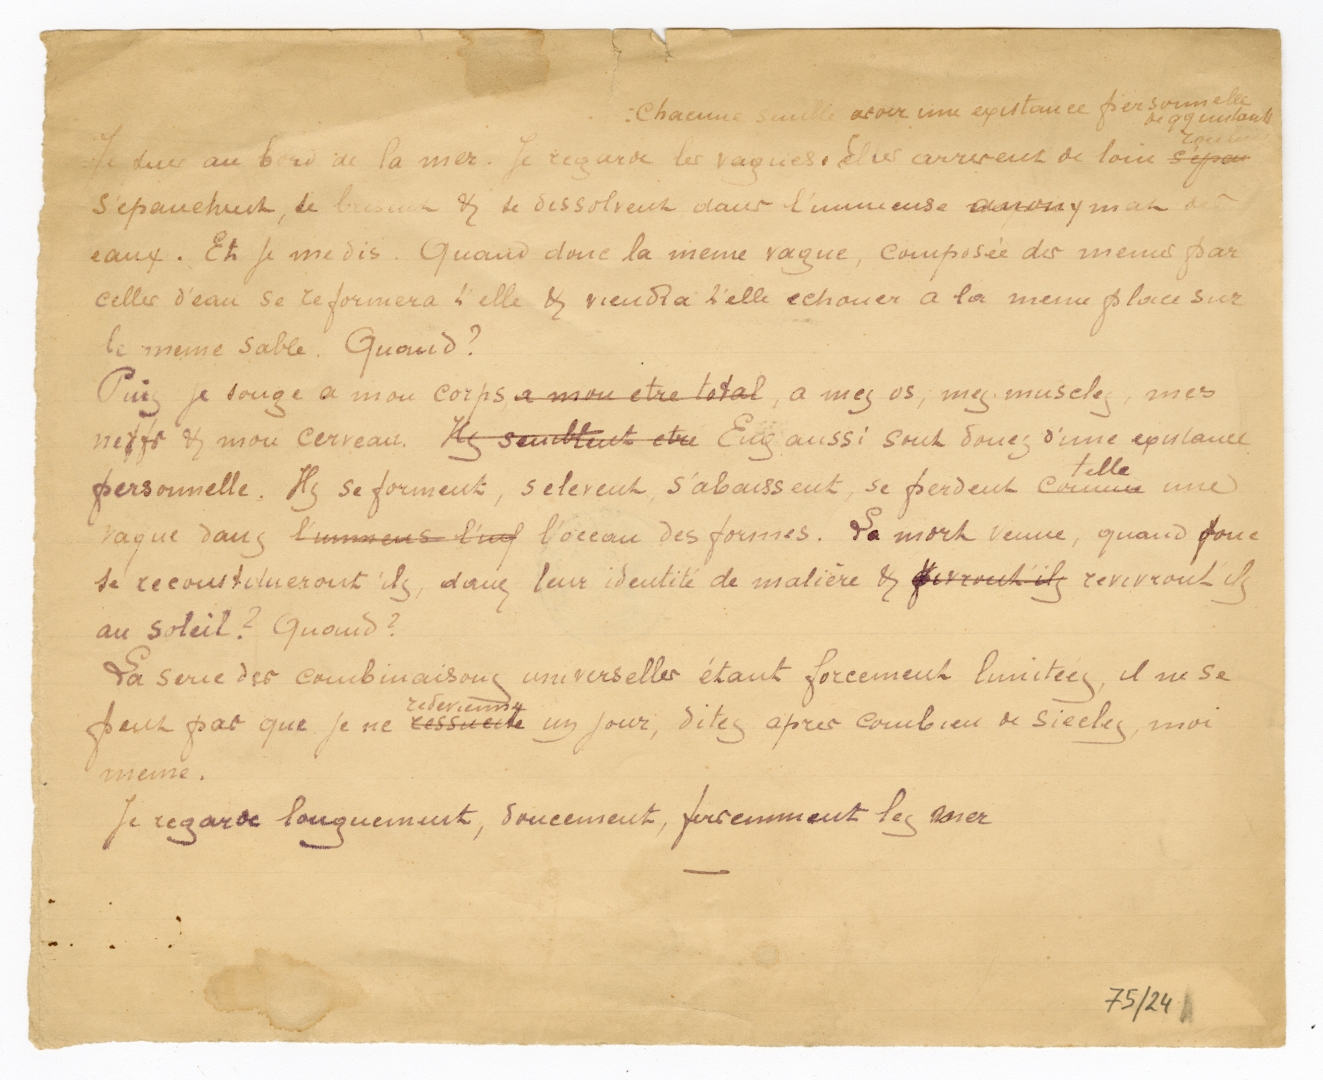 : chacune semble avoir une existance personnelle
de qq instants
Je suis au bord de la mer. Je regarde les vagues. Elles arrivent de loin s'epan
s'epanchent, se brisent & se dissolvent dans l'immense anonymat des
eaux. Et je me dis. Quand donc la meme vague, composée des memes par
celles d'eau se reformera t'elle & viendra t'elle echouer a la meme place sur
le meme sable. Quand?
Puis je songe a mon corps a mon etre total, a mes os, mes muscles, mes
nerfs & mon cerveau. Ils semblent etre Eux aussi sont doues d'une existance
personnelle. Ils se forment, s'elevent, s'abaissent, se perdent comme telle une
vague dans l'immens l'inf l'ocean des formes. La mort venue, quand donc
se reconstitueront ils, dans leur identité de matière & vivront'ils revivront'ils
au soleil? Quand?
La serie des combinaisons universelles étant forcement limitees, il ne se
redevienne
peut pas que je ne ressuscite un jour, dites apres combien de siecles, moi
meme.
Je regarde longuement, doucement, les mer
75/24